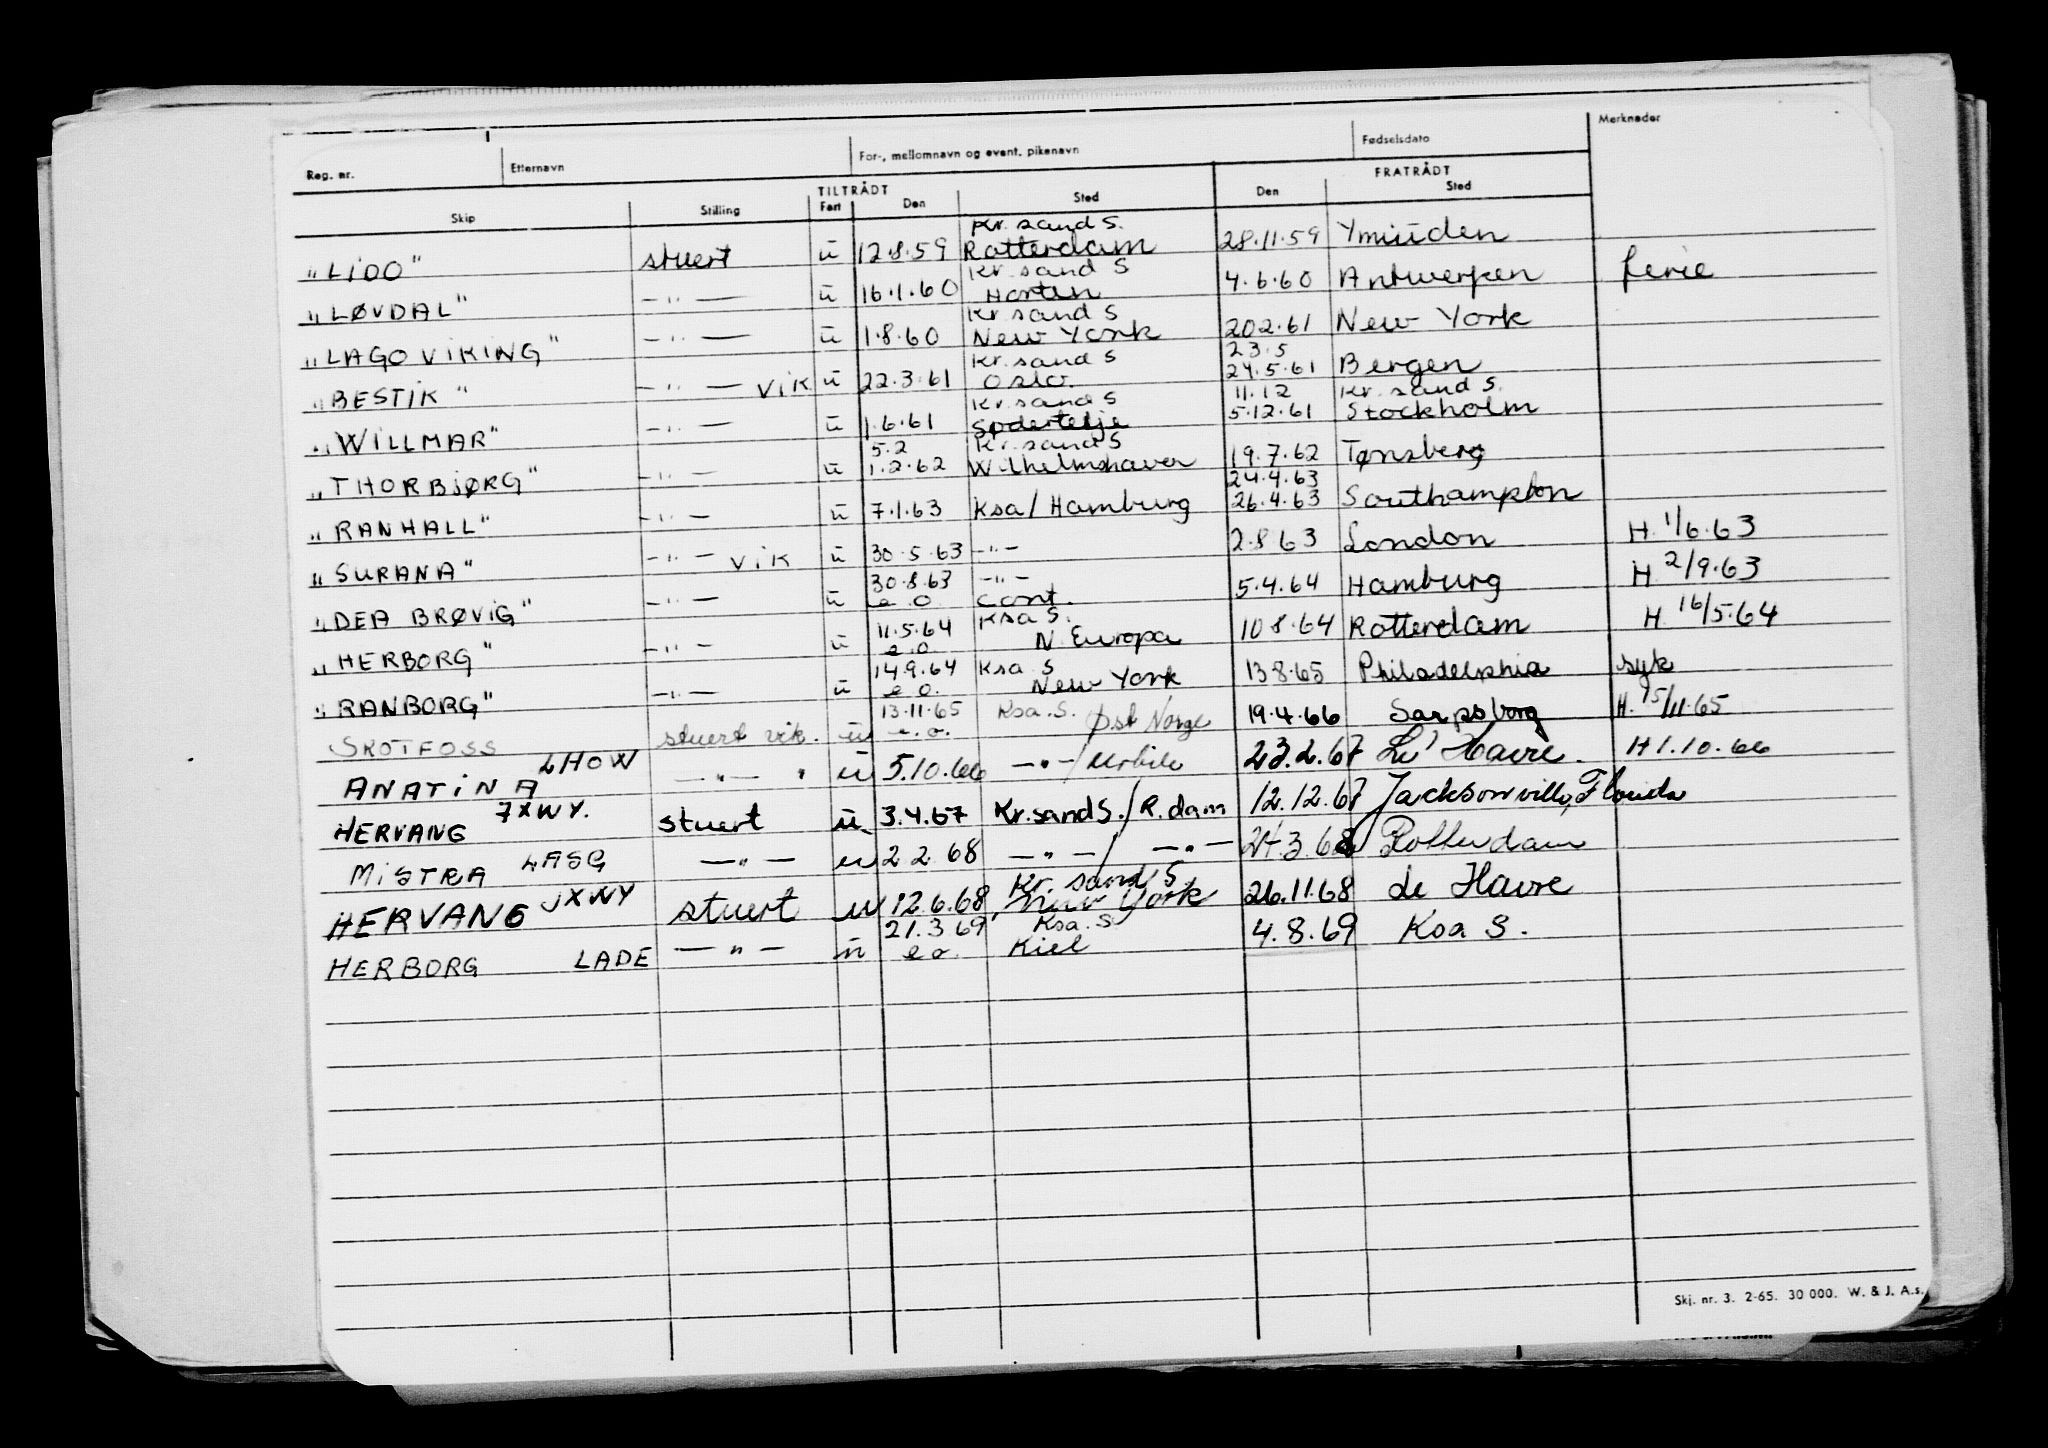 Reg. nr. Etternavn For-, mellomnavn og event. pikenavn Fødselsdato Merknader
TILTRÅDT FRATRÅDT
Skip Stilling Fart Den Sted Den Sted
Kr. sand S.
"LIDO" stuert u 12.8.59 Rotterdam 28.11.59 Ymuiden
Kr. sand S
"LØVDAL" -"- u 16.1.60 Horten 4.6.60 Antwerpen ferie
Kr sand S
"LAGO VIKING" -"- u 1.8.60 New York 20.2.61 New York
Kr. sand S 23.5
"BESTIK" -"- vik u 22.3.61 Oslo. 24.5.61 Bergen
Kr. sand S 11.12 Kr. sand S.
"WILLMAR" -"- u 1.6.61 Södertelje 5.12.61 Stockholm
5.2 Kr. sand S
"THORBJØRG" -"- u 1.2.62 Wilhelmshaven 19.7.62 Tønsberg
24.4.63
"RANHALL" -"- u 7.1.63 Ksa / Hamburg 26.4.63 Southampton
"SURANA" -"- vik u 30.5.63 -"- 2.8.63 London H. 1/6.63
30.8.63 -"-
"DEA BRØVIG" -"- u e.o. Cont. 5.4.64 Hamburg H 2/9.63
11.5.64 Ksa S.
"HERBORG" -"- u e.o N. Europa 10.8.64 Rotterdam H. 16/5.64
14.9.64 Ksa S
"RANBORG" -"- u e o. New York 13.8.65 Philadelphia syk
13.11.65 Ksa. S.
SKOTFOSS stuert vik. u e.o. Øst Norge 19.4.66 Sarpsborg H. 15/11.65
ANATINA LHOW -"- " u 5.10.66 -"-/ Mobile 23.2.67 Le' Havre. H 1.10.66
HERVANG JXWY. stuert u. 3.4.67 Kr.sand S. / R.dam 12.12.67 Jacksonville, Florida
MISTRA LASG -"- u 2.2.68 -"-/ -"- 24.3.68 Rotterdam
Kr. sand S.
HERVANG JXWY stuert u 12.6.68, New York 26.11.68 de Havre
21.3.69 Ksa. S
HERBORG LADE -"- u e o. Kiel 4.8.69 Ksa S.
Skj. nr. 3. 2-65. 30 000. W. & J. A.s.